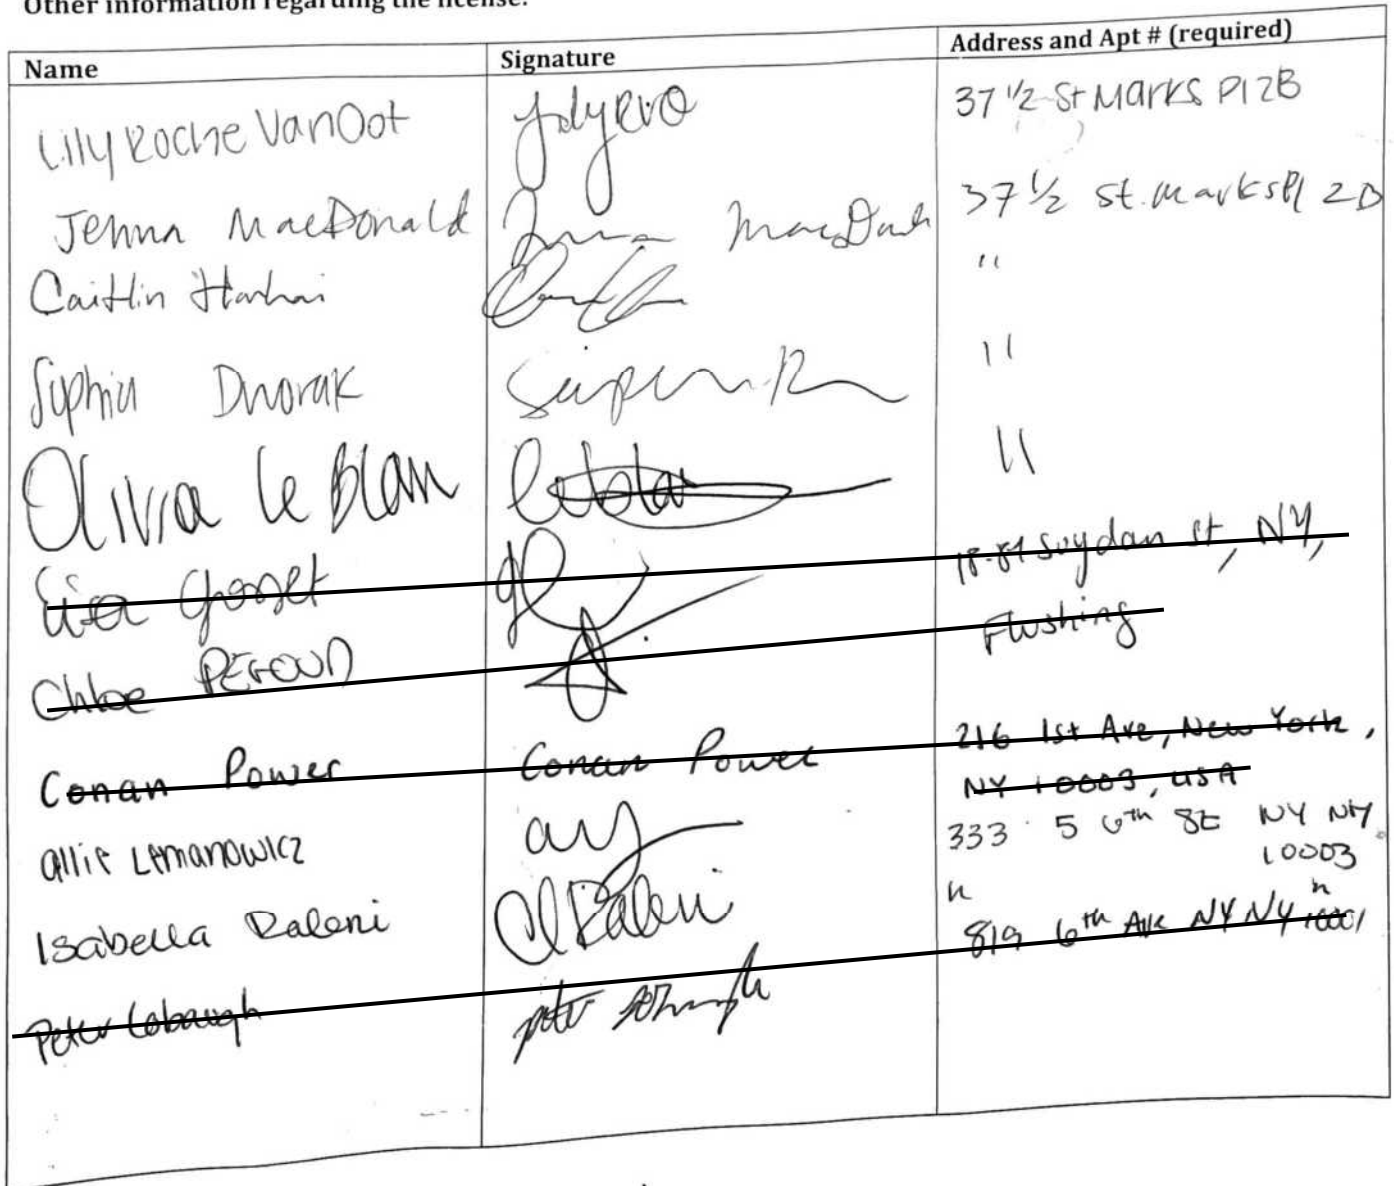 Other information regarding the license:
Name Signature Address and Apt # (required)
Lily Roche VanOot 37 1/2 St Marks Pl 2B
Jenna MacDonald MacDonald 37 1/2 St. Marks Pl 2D
Caitlin "
Sophia Dvorak "
Olivia le Blan "
Lisa 18-81 Suydam St, NY,
Flushing
Chloe PEGOUD
Conan Power Conan Power 216 1st Ave, New York,
NY 10003, USA
Allie Lemanowicz 333 5 6th St NY NY
10003
Isabella Raleni " "
Peter Lobaugh Peter Lobaugh 819 6th Ave NY NY 10001